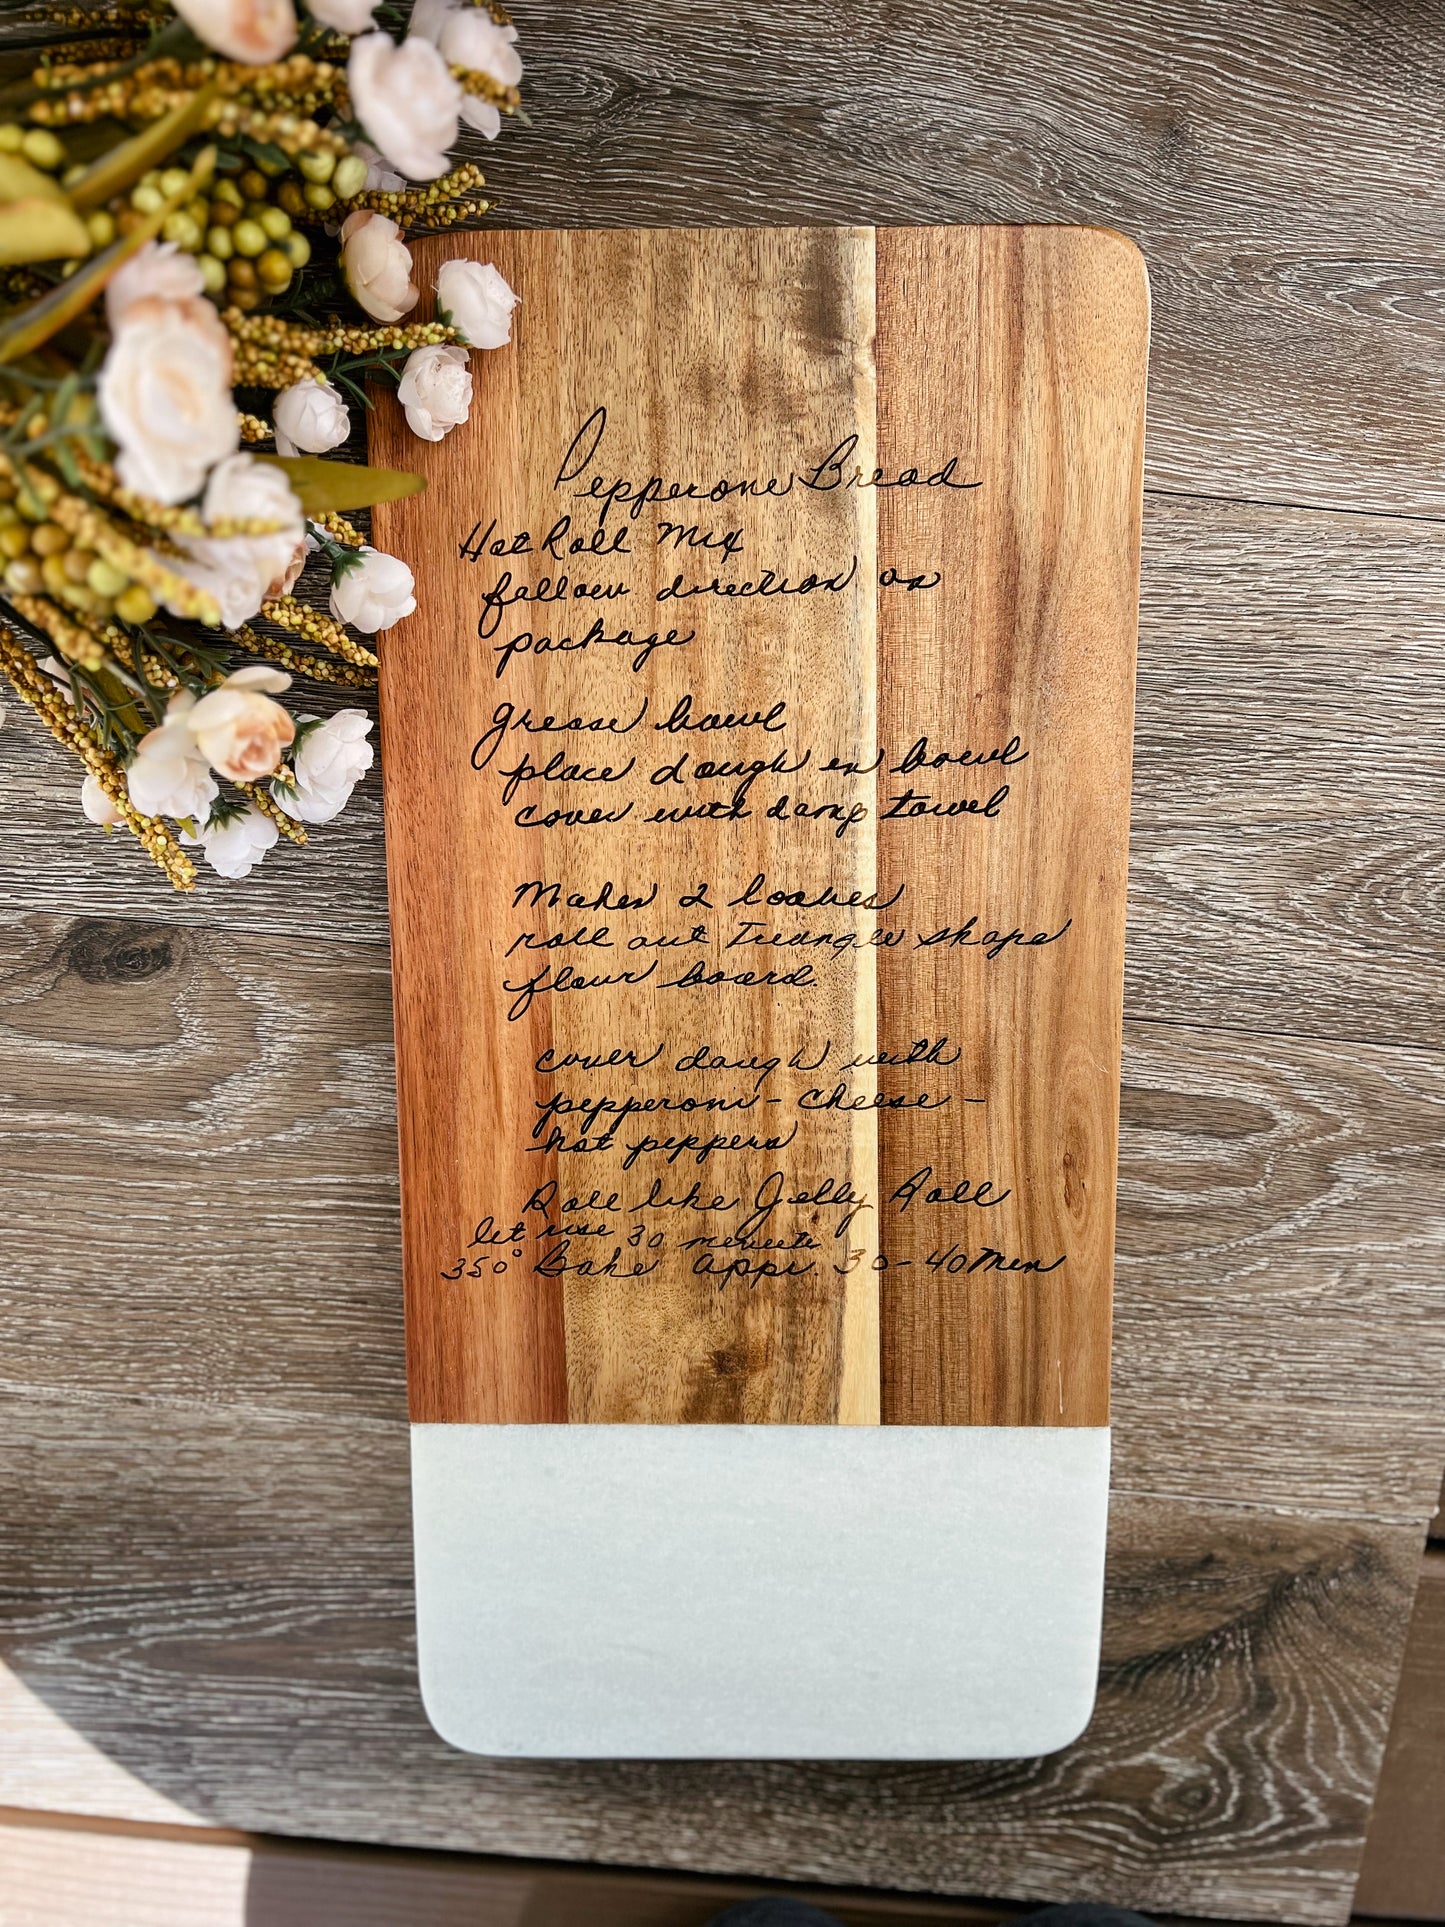 Pepperone Bread
Hot Roll Mix
follow direction on
package
grease bowl
place dough in bowl
cover with damp towel
Makes 2 loaves
roll out Triangle shape
flour board.
cover dough with
pepperoni - cheese -
hot peppers
Roll like Jelly Roll
let rise 30 minute
350° Bake appr. 30-40 Min